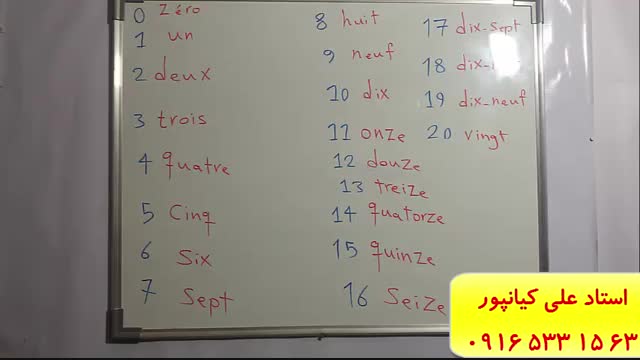 0 zéro
1 un
2 deux
3 trois
4 quatre
5 Cinq
6 Six
7 Sept
8 huit
9 neuf
10 dix
11 onze
12 douze
13 treize
14 quatorze
15 quinze
16 Seize
17 dix-sept
18 dix-
19 dix-neuf
20 vingt
استاد علی کیانپور
۰۹۱۶ ۵۳۳ ۱۵ ۶۳